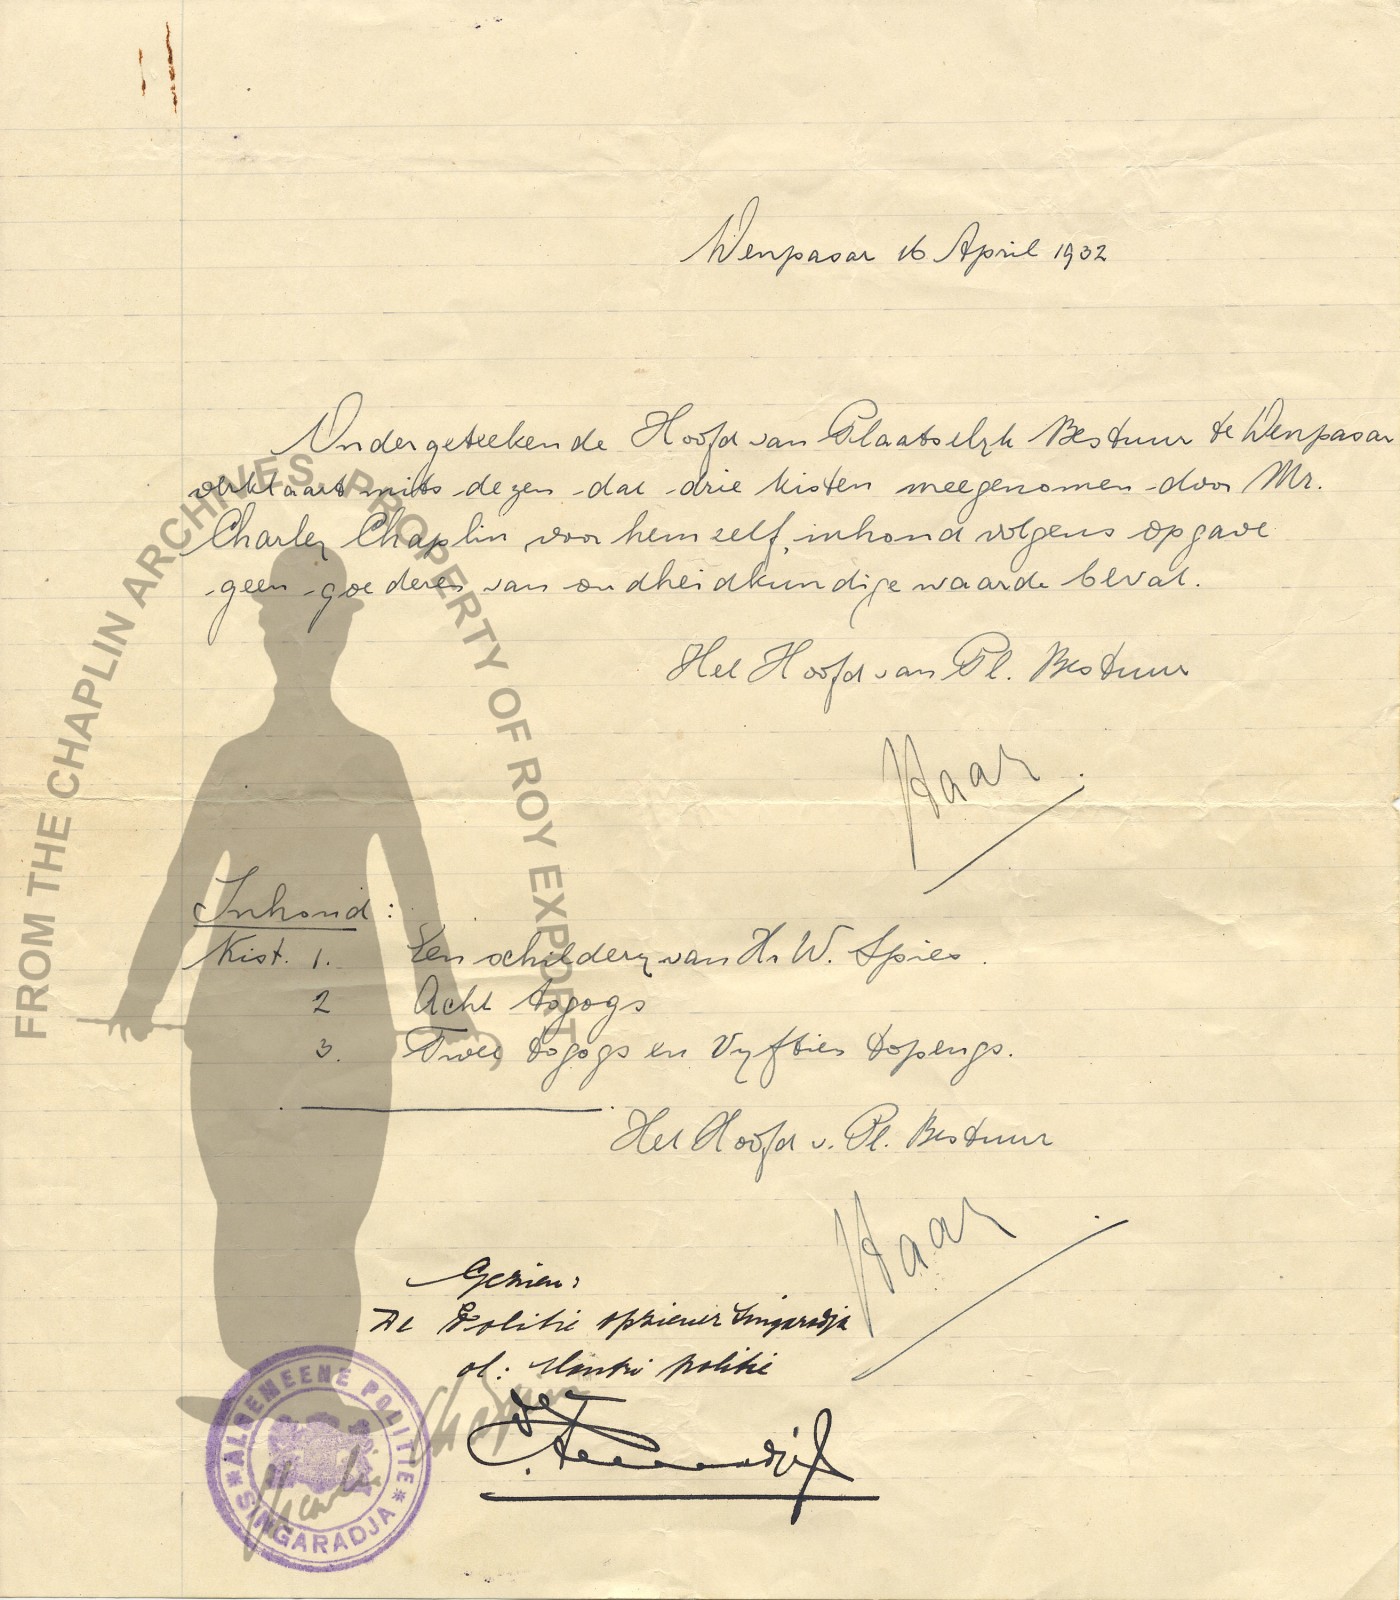 Denpasar 16 April 1932
Ondergeteekende Hoofd van Plaatselijk Bestuur te Denpasar
verklaart mits dezen dat drie kisten meegenomen door Mr.
Charley Chaplin voor hem zelf, inhoud volgens opgave
geen goederen van oudheidkundige waarde bevat.
Het Hoofd van Pl. Bestuur
Haar
Inhoud:
Kist. 1. Een schildery van Hr W. Spies.
2 Acht togogs
3. Twee togogs en Vyftien topengs.
Het Hoofd v. Pl. Bestuur
Haar
Gezien:
De Politie opziener Singaradja
Mantri politie
ALGEMEENE POLITIE
* SINGARADJA *
FROM THE CHAPLIN ARCHIVES. PROPERTY OF ROY EXPORT
Charlie Chaplin